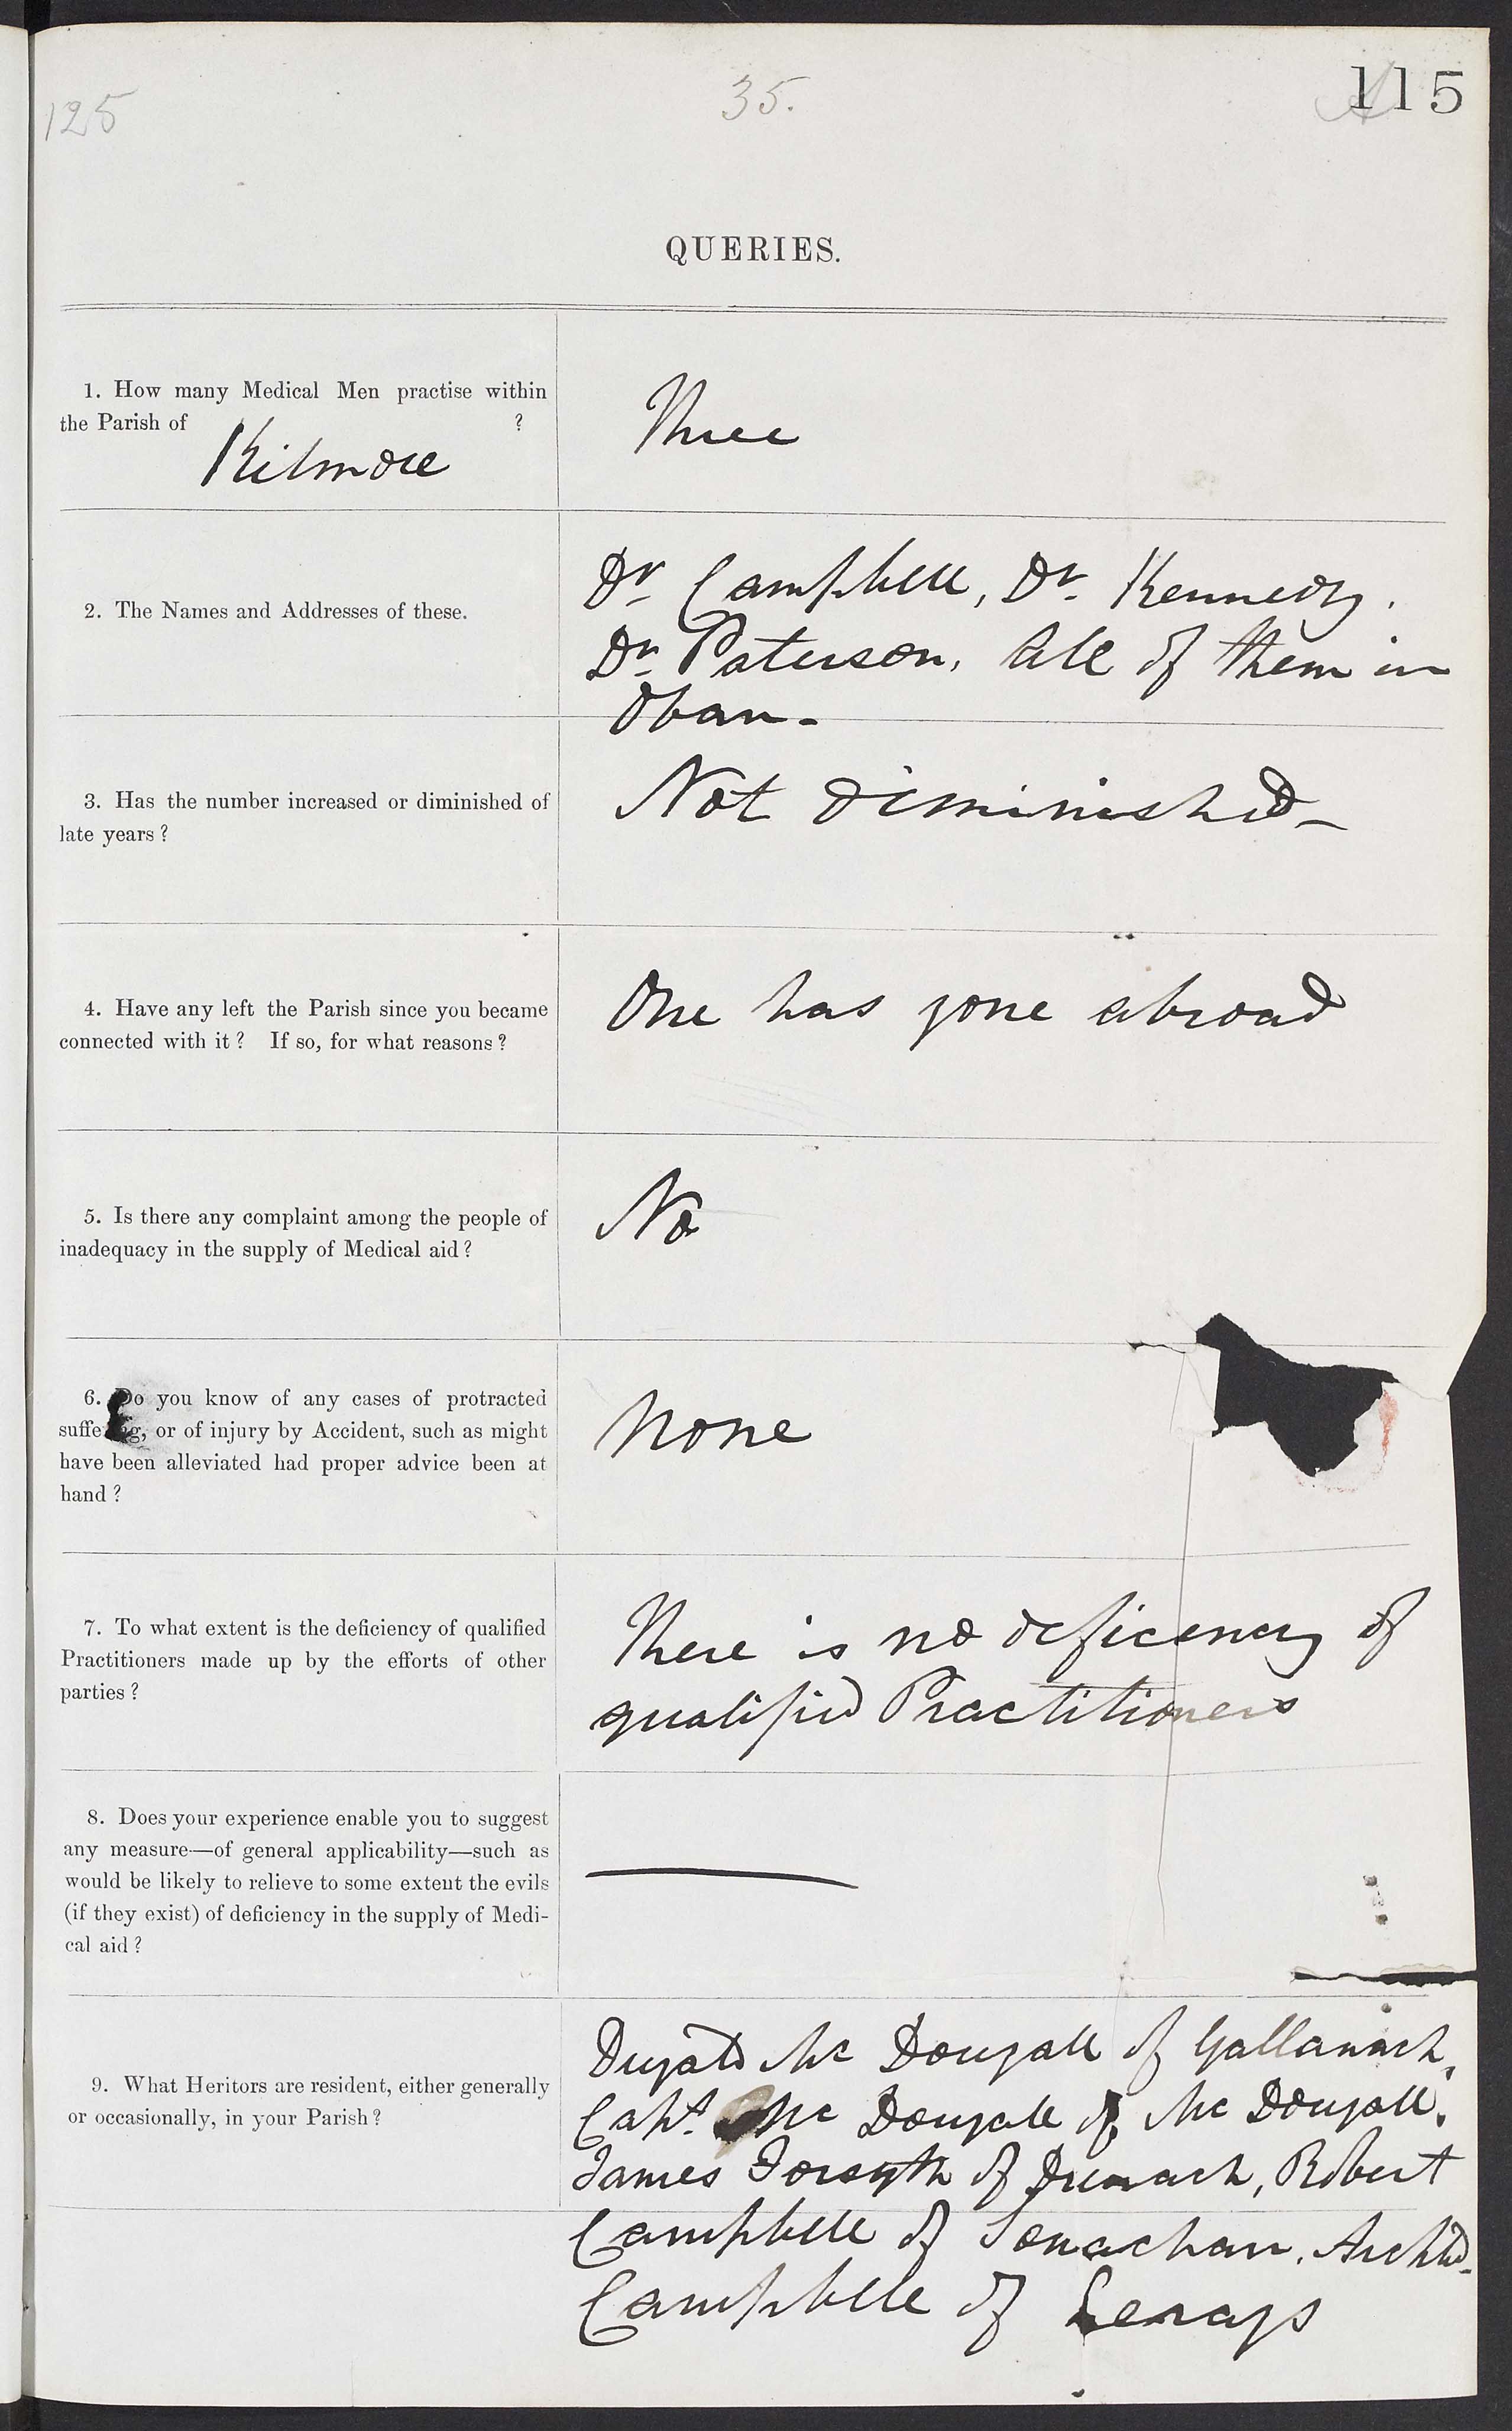 125
35.
115
QUERIES.
1. How many Medical Men practise within
the Parish of ?
Kilmore
Three
2. The Names and Addresses of these.
Dr. Campbell, Dr. Kennedy.
Dr. Paterson, All of them in
Oban-
3. Has the number increased or diminished of
late years?
Not diminished-
4. Have any left the Parish since you became
connected with it? If so, for what reasons?
One has gone abroad
5. Is there any complaint among the people of
inadequacy in the supply of Medical aid?
No
6. Do you know of any cases of protracted
suffering, or of injury by Accident, such as might
have been alleviated had proper advice been at
hand?
None
7. To what extent is the deficiency of qualified
Practitioners made up by the efforts of other
parties?
There is no deficiency of
qualified Practitioners
8. Does your experience enable you to suggest
any measure—of general applicability—such as
would be likely to relieve to some extent the evils
(if they exist) of deficiency in the supply of Medi-
cal aid?
9. What Heritors are resident, either generally
or occasionally, in your Parish?
Dugald Mc Dougall of Gallanach,
Capt. Mc Dougall of Mc Dougall.
James Forsyth of, Robert
Campbell of Sonachan. Archd.
Campbell of Lerags